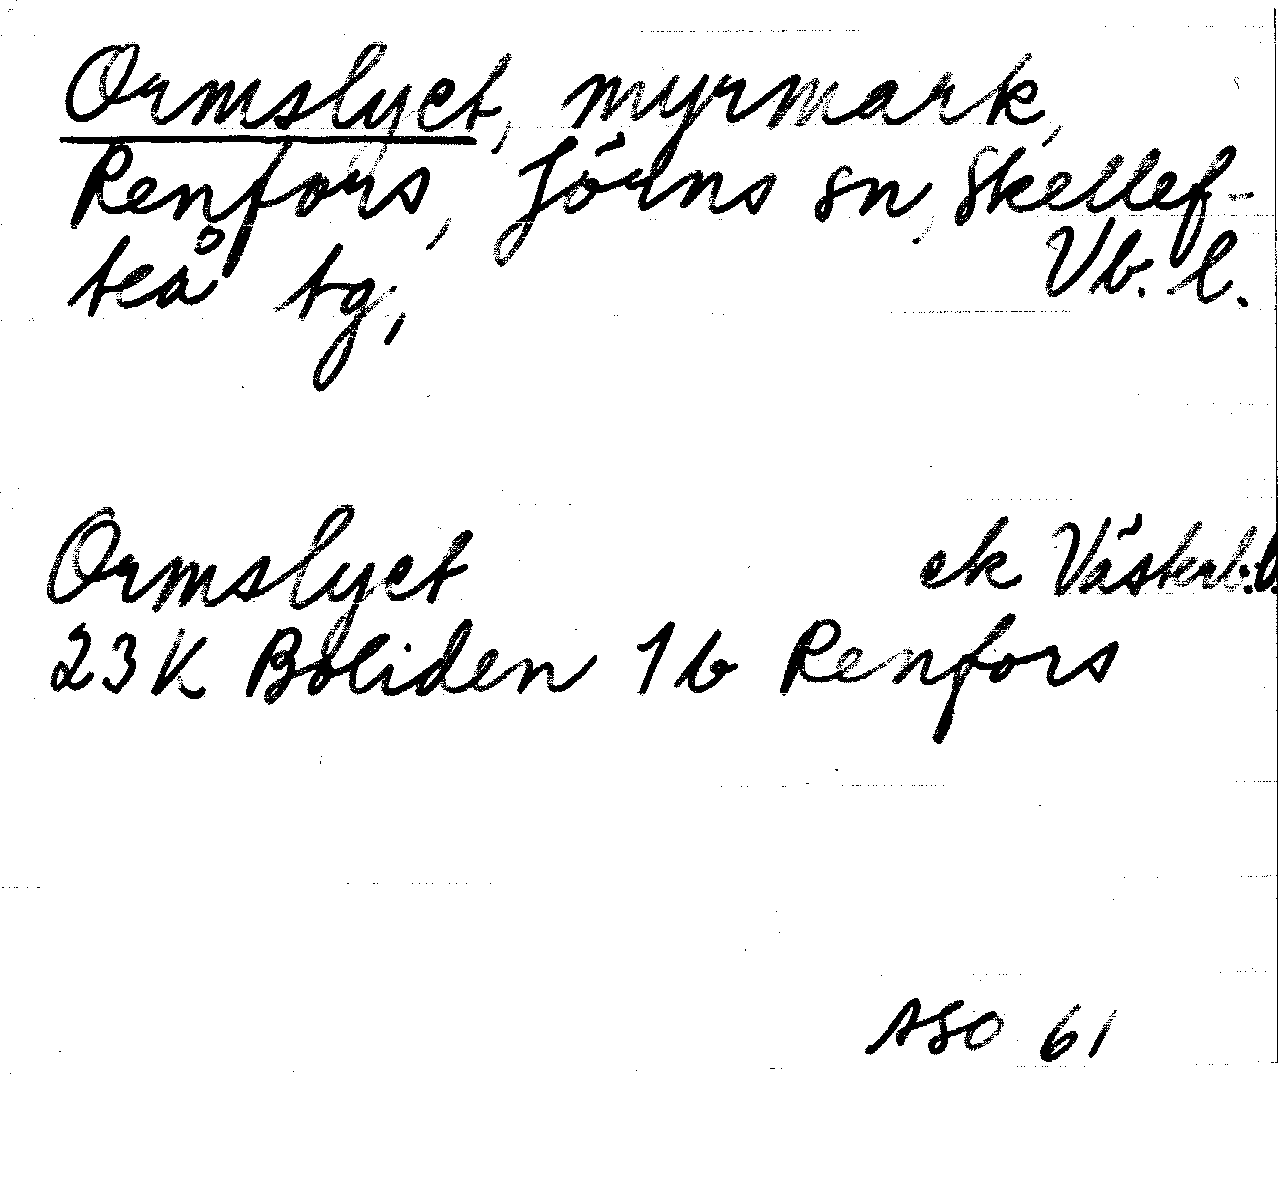 Ormslyet, myrmark,
Renfors, Jörns sn, Skellef-
teå tg, Vb. l.
Ormslyet ek Västerb.
23K Boliden 1b Renfors
ASO 61